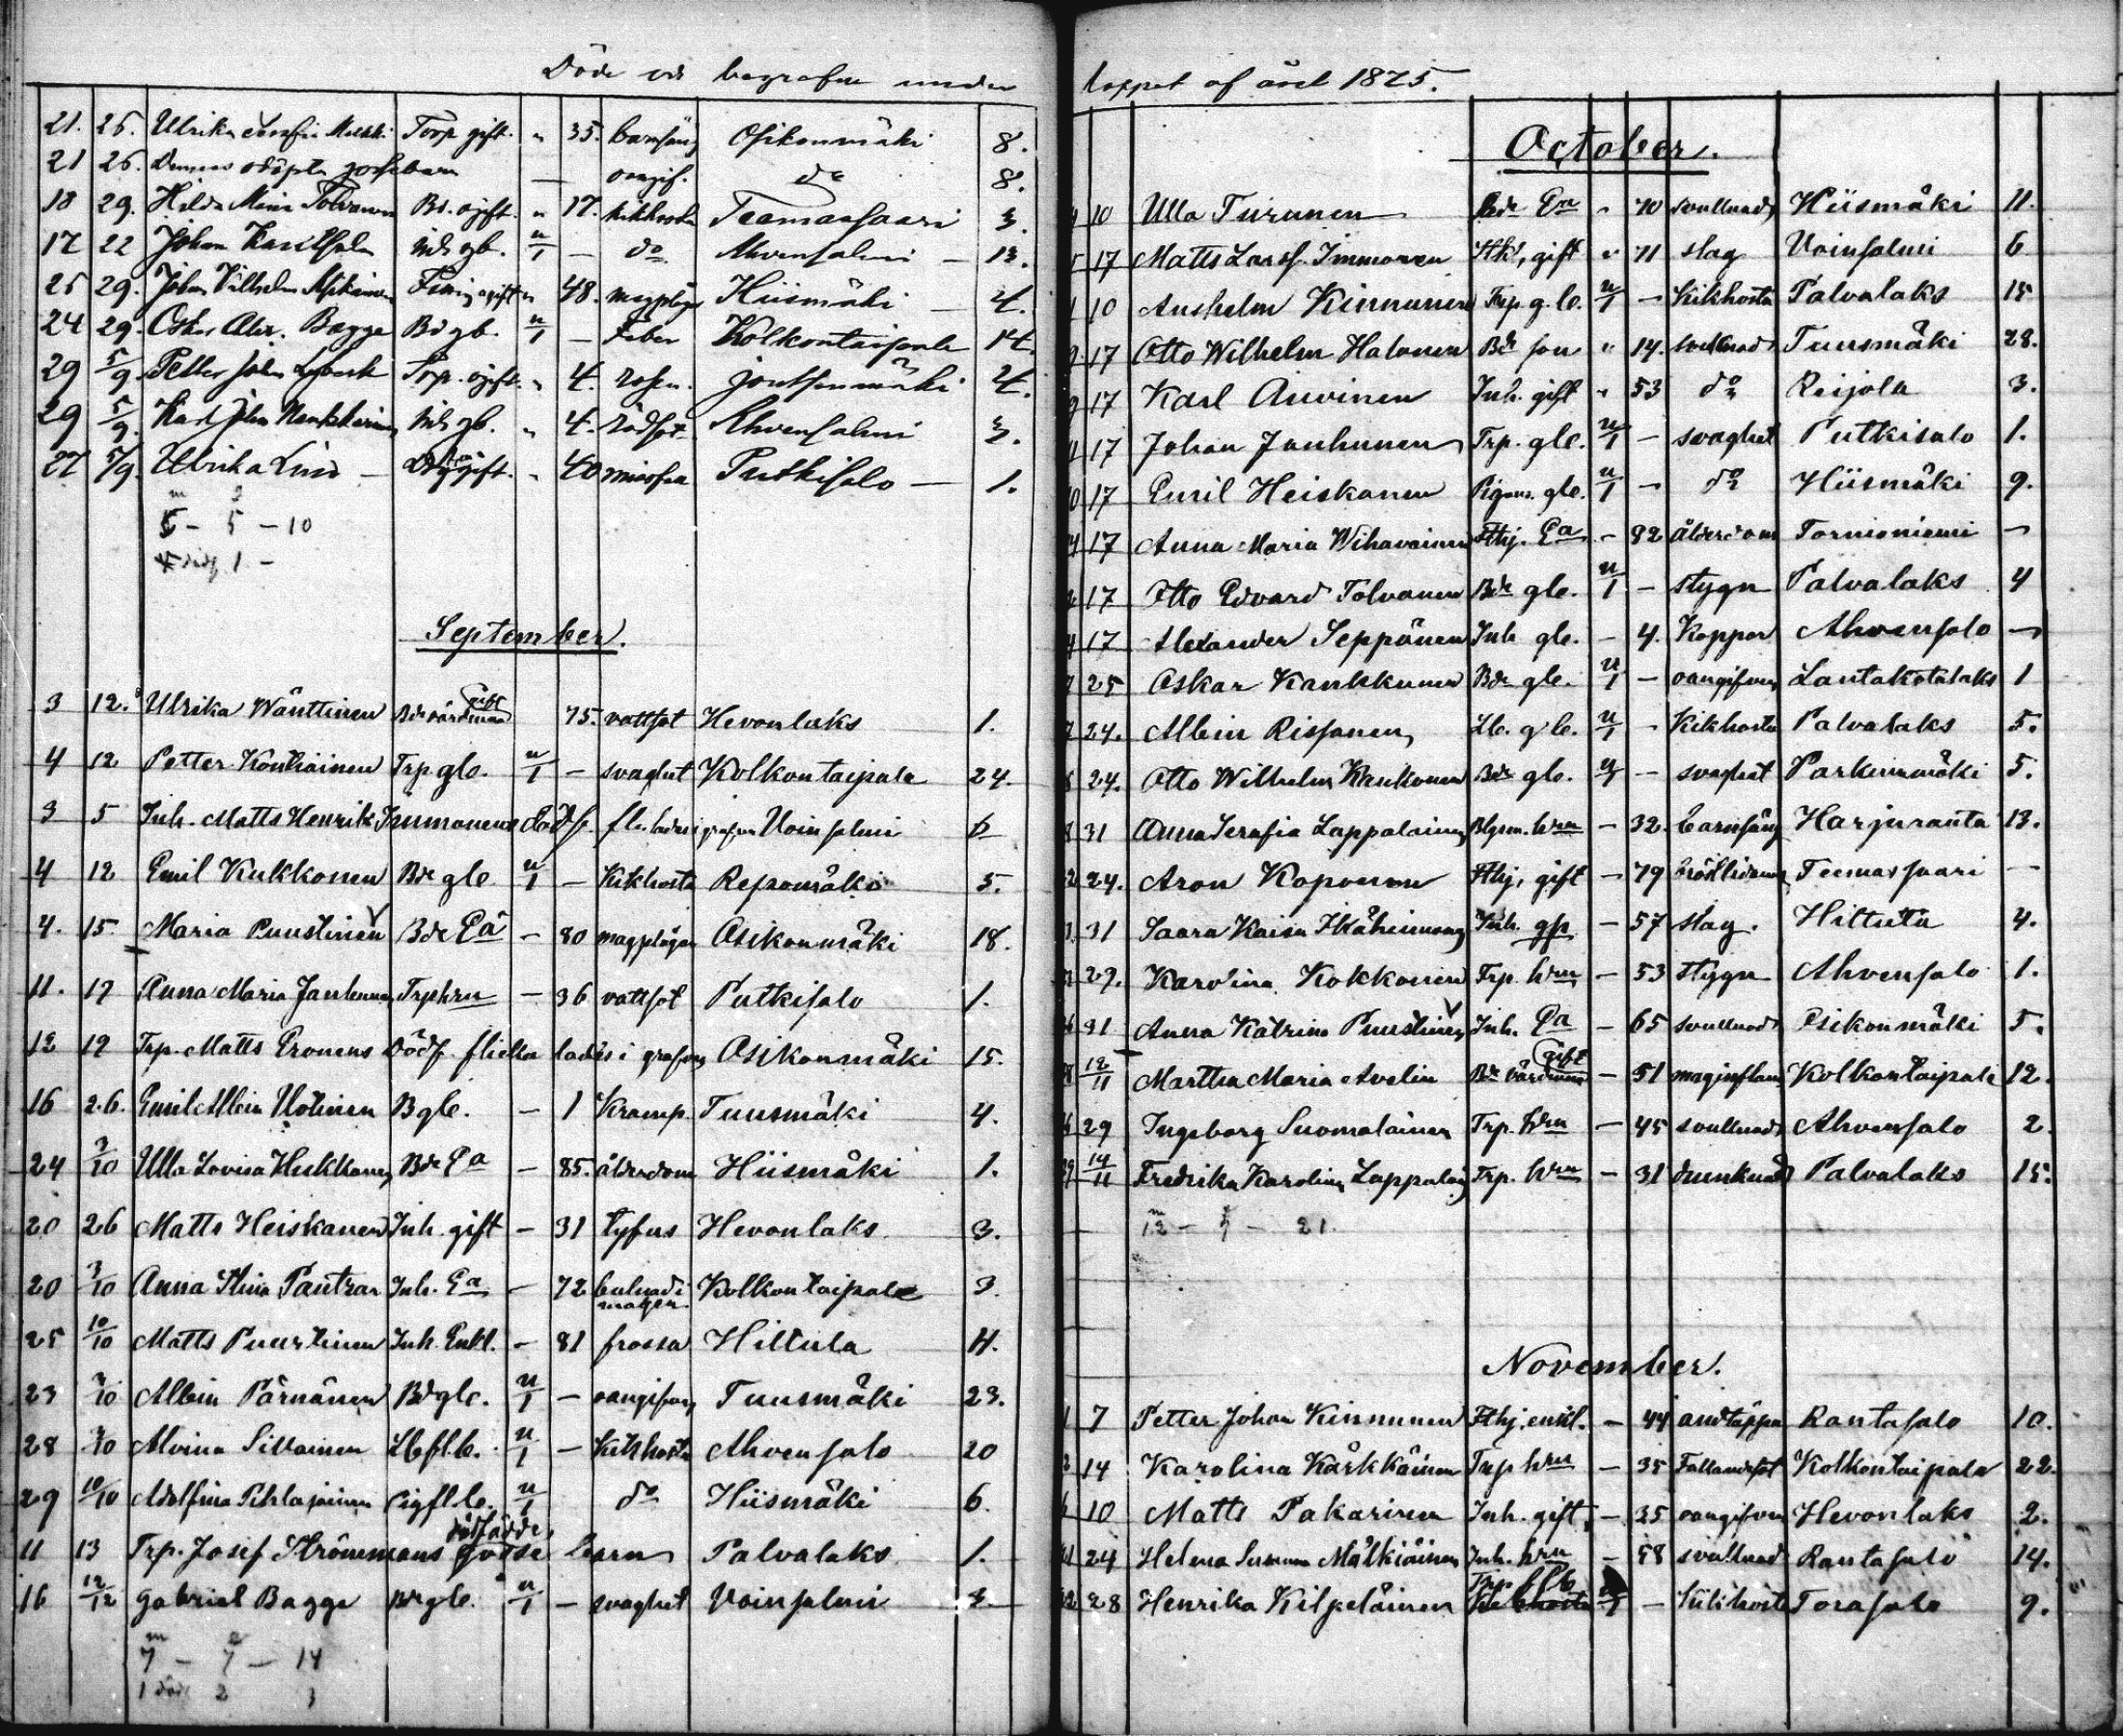 Döde och begrafne under
21. 26. Ulrika Torp. gift. " 35. barnsäng Osikonmäki 8.
21 26. odöpta gossebarn — oangif. do 8.
18 29. Hilda Maria Tolvanen Bd. ogift. " 17. kikhosta Teemassaari 3.
17 22 Johan gb. u/1 — do Ahvensalmi — 13.
25 29. Johan Vilhelm ogift " 48. magplågor Hiismäki — 4.
24 29. Oskar Alex. Bagge Bd gb. u/1 — Feber Kolkontaipale 14.
29 5/9. Petter John Trp. ogift. " 4. rosen. 4.
29 5/9. Karl John gb. " 4. rödsot Ahvensalmi 3.
27 5/9. Ulrika Lind — gift. " 40 Putkisalo — 1.
m q
5 – 5 – 10
1 –
September.
3 12. Ulrika Wänttinen Bdevärdinna gift 75. vattsot Hevonlaks 1.
4 12 Petter Kontiainen Trp glb. u/1 — svaghet Kolkontaipale 24.
3 5 Inh. Matts Henrik Immonens dödf. grafven Voinsalmi 6
4 12 Emil Kukkonen Bde glb u/1 — Kikhosta Reposmäki 5.
4. 15. Maria Puustinen Bde Ea — 80 magplågor Osikonmäki 18.
11. 17 Anna Maria Janhunen Trp hru — 36 vattsot Putkisalo 1.
12 19 Trp. Matts Eronens Dödf. flicka lades i grafven Osikonmäki 15.
16 26. Emil Albin Utinen B glb. — 1 Kramp. Tuusmäki 4.
24 3/10 Ulla Lovisa Hukkanen Bde Ea — 85. ålderdom Hiismäki 1.
20 26 Matts Heiskanen Inh. gift — 31 tyfus Hevonlaks 3.
20 3/10 Anna Stina Pantzar Inh. Ea — 72 bulnad i magen Kolkontaipale 3.
25 10/10 Matts Puustinen Inh. Enkl. — 81 frossa Hiltula 4.
23 3/10 Albin Pärnänen Bd glb. u/1 — oangifven Tuusmäki 23.
28 3/10 Alvina Sillainen Lb flb. u/1 — Kikhosta Ahvensalo 20
29 10/10 Adolfina Pihlajainen Pig flb. u/1 do Hiismäki 6.
11 13 Trp. Josef Strömmans dödfödde gosse barn Palvalaks 1.
16 12/12 Gabriel Bagge Bd glb. u/1 — svaghet Voinsalmi 3
m q
7 – 7 – 14
1 död 2 3
loppet af året 1875.
October.
10 Ulla Turunen Bde Ea " 70 svullnad Hiismäki 11.
17 Matts Larsf. Immonen gift " 71 slag Voinsalmi 6
10 Anshelm Kinnunen Trp. g.lb. u/1 — Kikhosta Palvalaks 15
17 Otto Wilhelm Halonen Bde son " 14. svullnad Tuusmäki 28.
17 Karl Auvinen Inh. gift " 53 do Reijola 3.
17 Johan Janhunen Trp. glb. u/1 — svaghet Putkisalo 1.
17 Emil Heiskanen Pigans. glb. u/1 — do Hiismäki 9.
17 Anna Maria Wihavainen Fthj. Ea — 82 ålderdom Tornioniemi —
17 Otto Edvard Tolvanen Bde glb. u/1 — stygn Palvalaks 4
17 Alexander Seppänen Inh glb. — 4. Koppor Ahvensalo —
25 Oskar Kankkunen Bde glb. u/1 — oangifven Lantakotalaks 1
24. Albin Rissanen Lb. glb. u/1 — Kikhosta Palvalaks 5.
24. Otto Wilhelm Kankonen Bde glb. u/1 — svaghet Parkinmäki 5.
31 Anna Serafia Lappalainen hru — 32. barnsäng Harjuranta 13.
24. Aron Koponen Fthj. gift — 79 Teemassaari —
31 Saara Kaisa Ikäheimonen Inh. — 57 slag. Hiltula 4.
27. Karolina Kokkonen Trp. hru — 53 stygn Ahvensalo 1.
31 Anna Katrina Puustinen Inh. Ea — 65 svullnad Osikonmäki 5.
12/11 Martha Maria Avelin Bde värdinna gift — 51 maginflam Kolkontaipale 12.
29 Ingeborg Suomalainen Trp. hru — 45 svullnad Ahvensalo 2.
14/11 Fredrika Karolina Lappalain Trp. hru — 31 drunknad Palvalaks 15.
m q
12 – 9 – 21.
November.
7 Petter Johan Kinnunen Fthj. enkl. — 44 andtäppa Rantasalo 10.
14 Karolina Kärkkäinen Trp hru — 35 Fallandesot Kolkontaipale 22.
10 Matts Pakarinen Inh. gift. — 35 oangifven Hevonlaks 2.
24 Helena Susanna Mälkiäinen Inh. hru — 58 svullnad Rantasalo 14.
28 Henrika Kilpeläinen Trp flb u/1 — Kikhosta Torasalo 9.